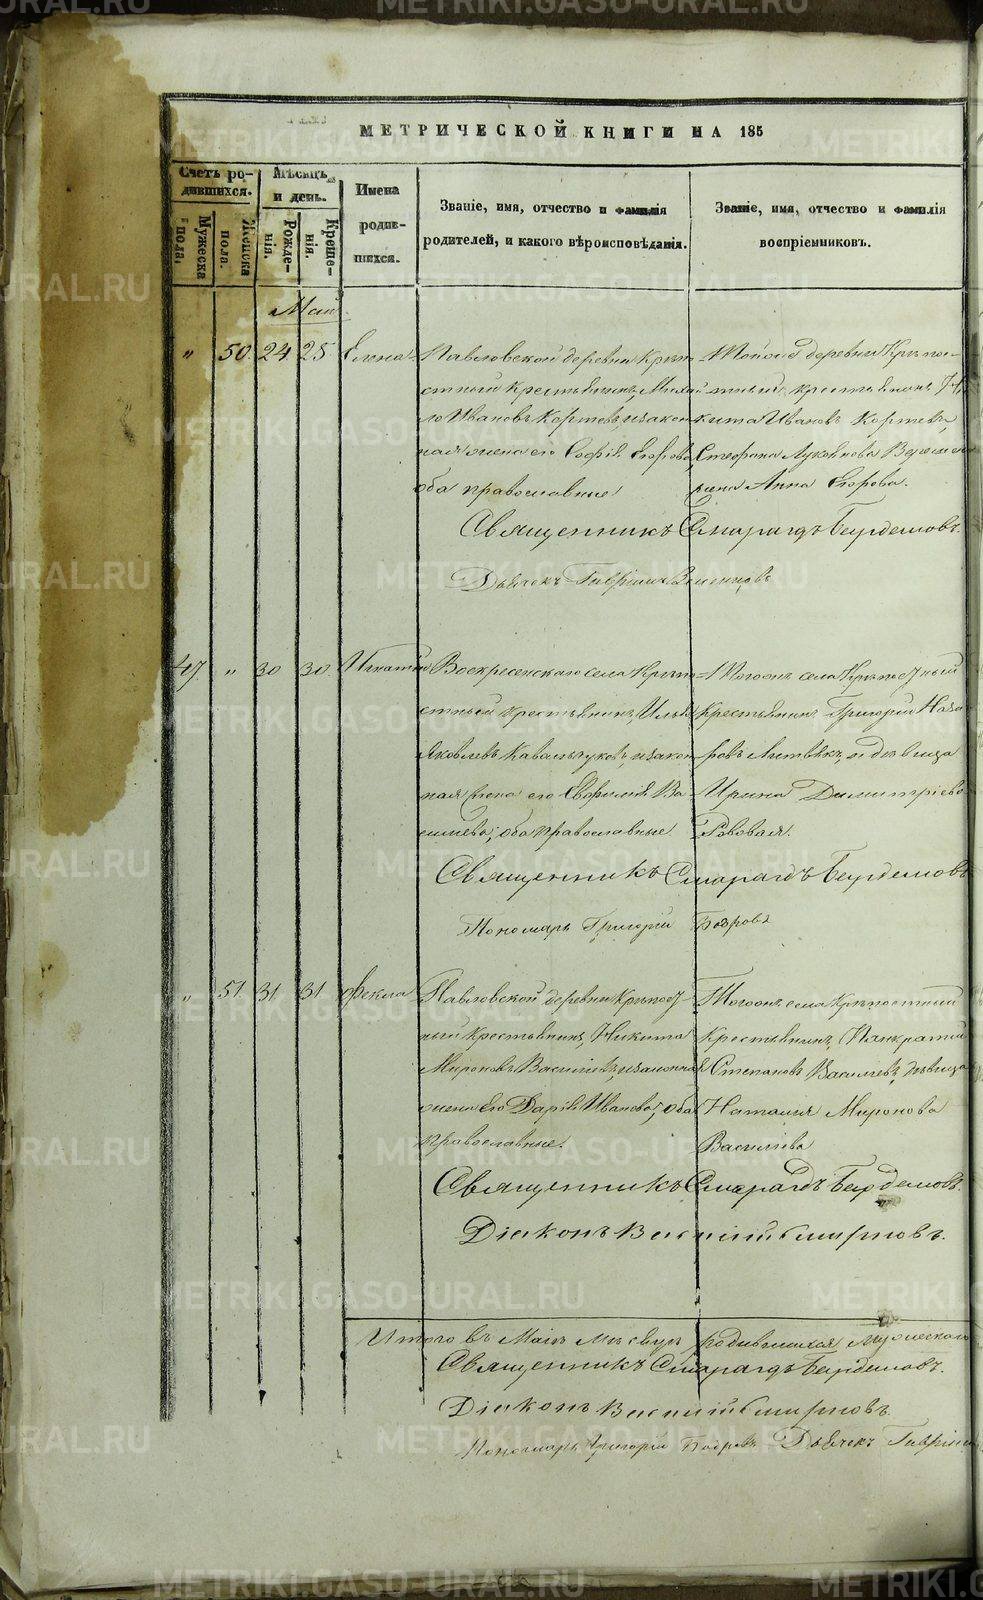 МЕТРИЧЕСКОЙ КНИГИ НА 185
Счетъ ро-
дившихся.
Мужеска
пола.
Женска
пола.
Мѣсяцъ
и день.
Рожде-
нія.
Креще-
нія.
Имена
родив-
шихся.
Званіе, имя, отчество и фамилія
родителей, и какого вѣроисповѣданія.
Званіе, имя, отчество и фамилія
воспріемниковъ.
Маій
" 50 24 25 Елена
Павловской деревни Крѣпо-
стный крестьянинъ Михай
ло Ивановъ Кортевъ, и закон
ная жена его Софія Егорова,
оба православные
Той же деревни Крѣпо-
стный крестьянинъ Ни
кита Ивановъ Кортевъ,
Стефана Луковнова
жена Анна Егорова.
Священникъ Смарагдъ Бирдемовъ.
Дьячекъ Гавріилъ
47. " 30 30 Игнатій
Воскресенскаго села Крѣпо-
стный крестьянинъ, Илья
Яковлевъ Кавальчуковъ, и закон
ная жена его Евфимія Ва
сильева; оба православные
Тогожъ села Крѣпостный
Крестьянинъ Григорій Наза
ровъ Литвякъ, и дѣвица
Ирина Димитріева
Священникъ Смарагдъ Бирдемовъ
Пономарь Григорій Бобровъ
" 51. 31 31 Фекла
Павловской деревни Крѣпост
ный Крестьянинъ, Никита
Мироновъ Васильевъ, и законная
жена его Дарія Иванова; оба
православные.
Тогожъ села Крѣпостный
Крестьянинъ, Панкратій
Степановъ Васильевъ, дѣвица
Наталия Миронова
Васильева
Священникъ Смарагдъ Бирдемовъ.
Діаконъ Василій Смирновъ.
Итого въ Маіѣ мѣсяцѣ родившихся мужескаго
Священникъ Смарагдъ Бирдемовъ.
Діаконъ Василій Смирновъ.
Пономарь Григорій Бобровъ Дьячекъ Гавріилъ
METRIKI.GASO-URAL.RU